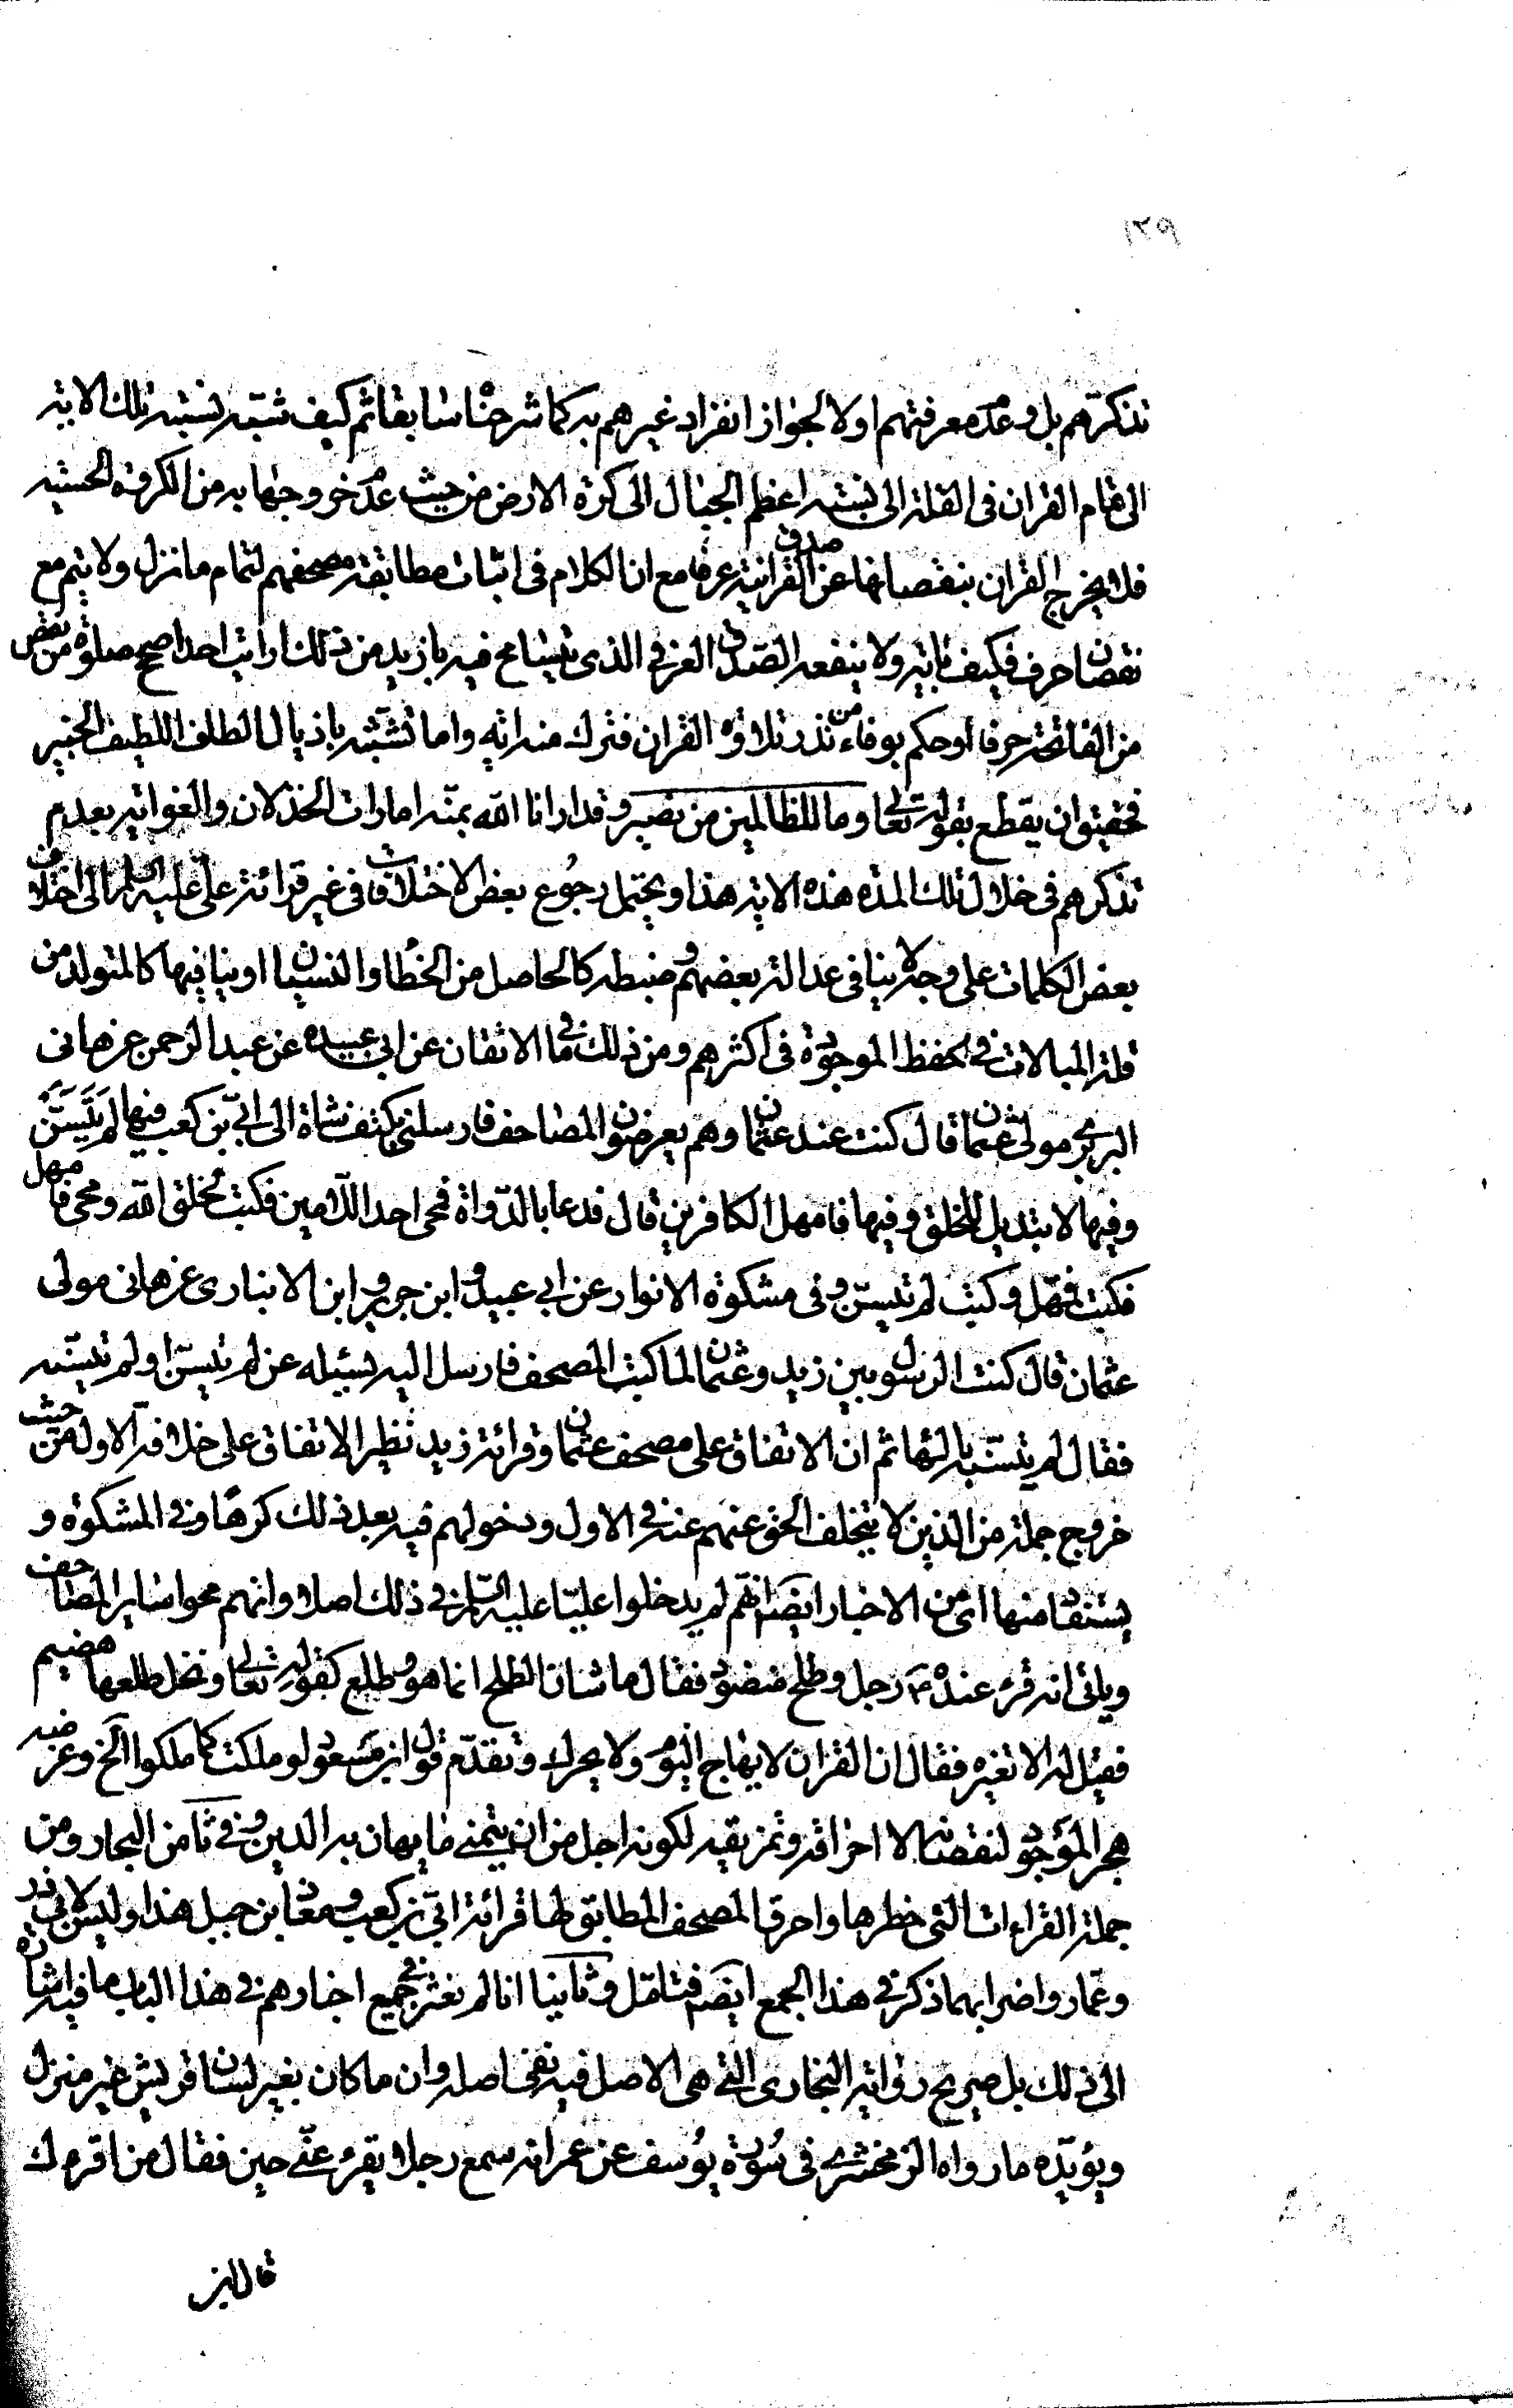 ١٢٩
تذكرهم بل وعدم معرفتهم اولا لجواز انفراد غيرهم به كما شرحنا سابقا ثم كيف شبه نسبة تلك الاية
الى تمام القران فى القلة الى نسبة اعظم الجبال الى كرة الارض من حيث عدم خروجها به من الكروية الحسية
فلا يخرج القران بنقصانها عن صدق القرانية عرفا مع ان الكلام فى اثبات مطابقة مصحفهم لتمام ما نزل ولا يتم مع
نقصان حرف فكيف باية ولا ينفعه الصدق العرفى الذى يتسامح فيه بازيد من ذلك ارايت احدا صحح صلوة من نقص
من الفاتحة حرفا او حكم بوفاء من نذر تلاوة القران فترك منه اية واما تشبثه باذيال الطاف اللطيف الخبير
فحقيق ان يقطع بقوله تعالى وما للظالمين من نصير وقد ارانا الله بمنه امارات الخذلان والغواية بعدم
تذكرهم فى خلال تلك المدة هذه الاية هذا ويحتمل رجوع بعض الاختلافات فى غير قرائة على عليه السلم الى اختلاف
بعض الكلمات على وجه لا ينافى عدالة بعضهم وضبطه كالحاصل من الخطا والنسيان او ينافيها كالمتولد من
قلة المبالات فى الحفظ الموجودة فى اكثرهم ومن ذلك ما فى الاتقان عن ابى عبيدة عن عبد الرحمن عن هانى
البربرى مولى عثمان قال كنت عند عثمان وهم يعرضون المصاحف فارسلنى بكتف شاة الى ابى بن كعب فيها لم يتسن
وفيها لا تبديل للخلق وفيها فامهل الكافرين قال فدعا بالدواة فمحى احد اللامين فكتب لخلق الله ومحى فامهل
فكتب فمهل وكتب لم يتسنه وفى مشكوة الانوار عن ابى عبيد وابن جرير وابن الانبارى عن هانى مولى
عثمان قال كنت الرسول بين زيد وعثمان لما كتب المصحف فارسل اليه يسئله عن لم يتسن او لم يتسنه
فقال لم يتسنه بالهاء ثم ان الاتفاق على مصحف عثمان وقرائة زيد نظير الاتفاق على خلافة الاول من حيث
خروج جملة من الذين لا يتخلف الحق عنهم عنه فى الاول ودخولهم فيه بعد ذلك كرها وفى المشكوة و
يستفاد منها اى من الاخبار ايضا انهم لم يدخلوا عليا عليه السلم فى ذلك اصلا وانهم محوا ساير المصاحف
وياتى انه قرء عنده ع رجل وطلح منضود فقال ما شان الطلح انما هو وطلع كقوله تعالى ونخل طلعها هضيم
فقيل له الا تغيره فقال ان القران لا يهاج اليوم ولا يحرك وتقدم قول ابن مسعود لو ملكت كما ملكوا الخ وغرضه
هجر الموجود لنقصانه لا احراقه وتمزيقه لكونه اجل من ان يتمنى ما يهان به الدين وفى ثامن البحار ومن
جملة القراءات التى حظرها واحرق المصحف المطابق لها قرائة ابى بن كعب ومعاذ بن جبل هذا وليس لابى ذر
وعمار واضرابهما ذكر فى هذا الجمع ايضا فتامل وثانيا انا لم نعثر فى جميع اخبارهم فى هذا الباب ما فيه اشارة
الى ذلك بل صريح رواية البخارى التى هى الاصل فيه نفى اصله وان ما كان بغير لسان قريش غير منزل
ويؤيده ما رواه الزمخشرى فى سورة يوسف عن عمر انه سمع رجلا يقرء عتى حين فقال من اقرءك
قال ابن